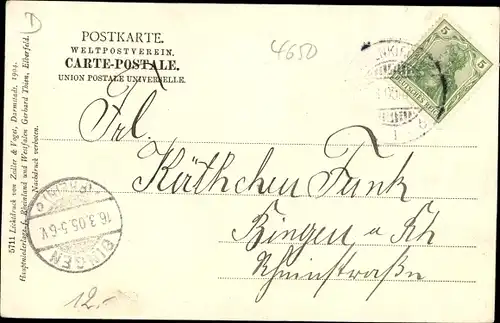 D
POSTKARTE.
WELTPOSTVEREIN.
CARTE-POSTALE.
UNION POSTALE UNIVERSELLE.
4650
5
5
Frl.
Käthchen Funk
Bingen a Rh
Rheinstraße
BINGEN
16.3.05.5-6V.
12.-
5711 Lichtdruck von Zedler & Vogel, Darmstadt, 1904.
Hauptniederlage f. Rheinland und Westfalen Gerhard Thien, Elberfeld.
Nachdruck verboten.